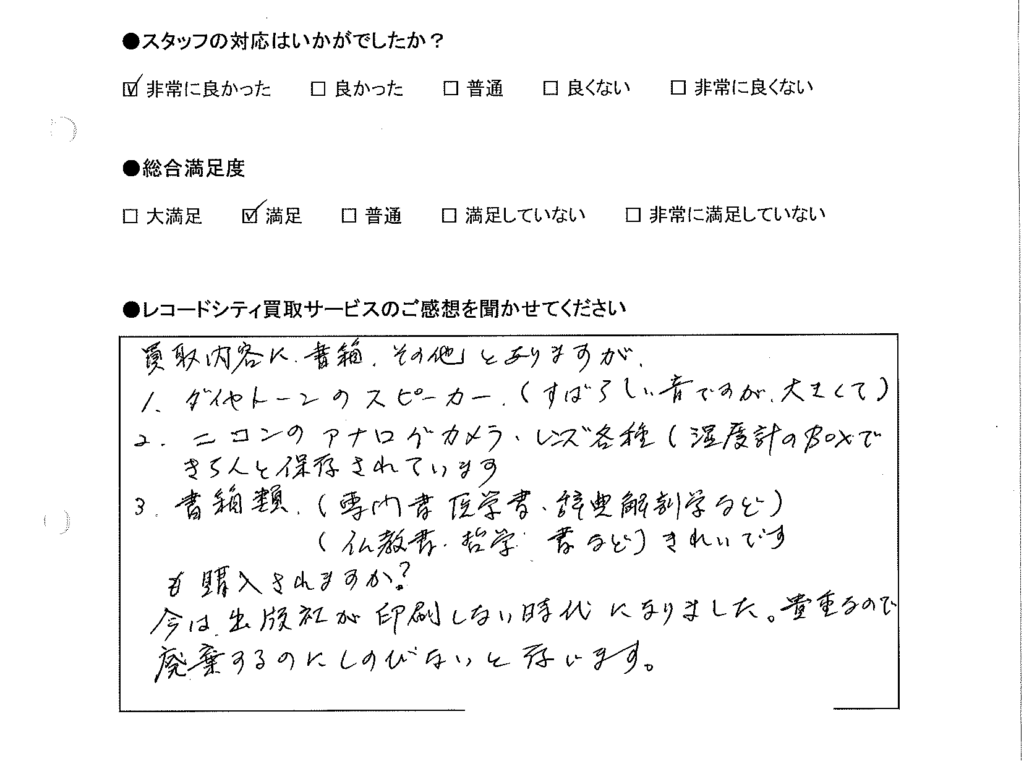 ●スタッフの対応はいかがでしたか？
☑ 非常に良かった □ 良かった □ 普通 □ 良くない □ 非常に良くない
●総合満足度
□ 大満足 ☑ 満足 □ 普通 □ 満足していない □ 非常に満足していない
●レコードシティ買取サービスのご感想を聞かせてください
買取内容に、書籍、その他」とありますが、
1、ダイヤトーンのスピーカー、(すばらしい音ですが、大きくて)
2．ニコンのアナログカメラ・レンズ各種(湿度計のBOXで
きちんと保存されています
3．書籍類、(専門書 医学書・辞典解剖学など)
(仏教書・哲学 書など) きれいです
も購入されますか?
今は、出版社が印刷しない時代になりました。貴重なので
廃棄するのにしのびないと存います。